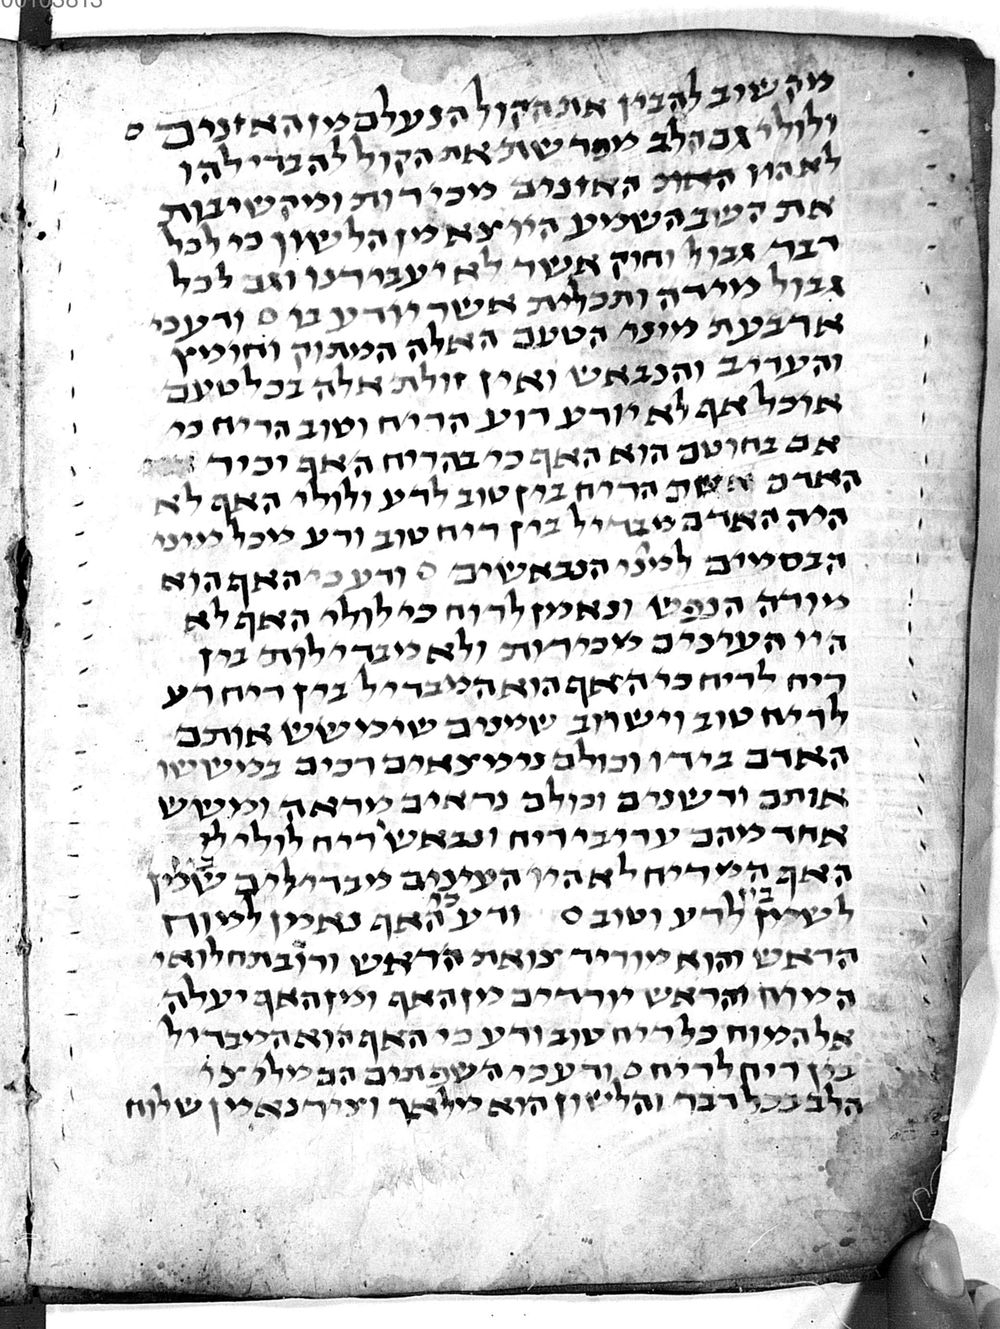 00103813
מקשיב להבין את הקול הנעלם מן האזנים ס
ולולי גם הלב מפרשת את הקול להבדילהו
לא היו האזנים מכירות ומקשיבות
את השב השמע היוצא מן הלשון כי לכל
דבר גבול וחוק אשר לא יעבירנו וגם לכל
גבול מידה ותכלית אשר יודע בו ס ודע כי
ארבעת מיני הטעם האלה המתוק וחומץ
והעריב והנבאש ואין זולת אלה בכל טעם
אוכל אף לא יודע רוע הריח וטוב הריח כי
אם בחוטם הוא האף כי בהריח האף יכיר
האדם את הריח בין טוב לרע ולולי האף לא
היה האדם מבדיל בין ריח טוב ורע מכל מיני
הבסמים למיני הנבאשים ס ודע כי האף הוא
מורה הנפש ונאמן לרוח כי לולי האף לא
היו העינים מכירות ולא מבדילות בין
ריח לריח כי האף הוא המבדיל בין ריח רע
לריח טוב ויש רוב שמנים שימשש אותם
האדם בידו וכולם נימצאים רכים במששו
אותם ודשנים וכולם נראים מראה ומשש
אחד מהם עריבי ריח ונבאשי ריח לולי
האף המריח לא היו העינים מבדילים בין שמן
לשמן בין לרע וטוב ס ודע כי האף נאמן למוח
הראש והוא מוריד צואת הראש ורוב תחלואי
המוח והראש יורדים מן האף ומן האף יעלה
אל המוח כל ריח טוב ודע כי האף הוא המבדיל
בין ריח לריח ס ודע כי השפתים הם מליצי
הלב בכל דבר והלשון הוא מלאך וציר נאמן שלוח